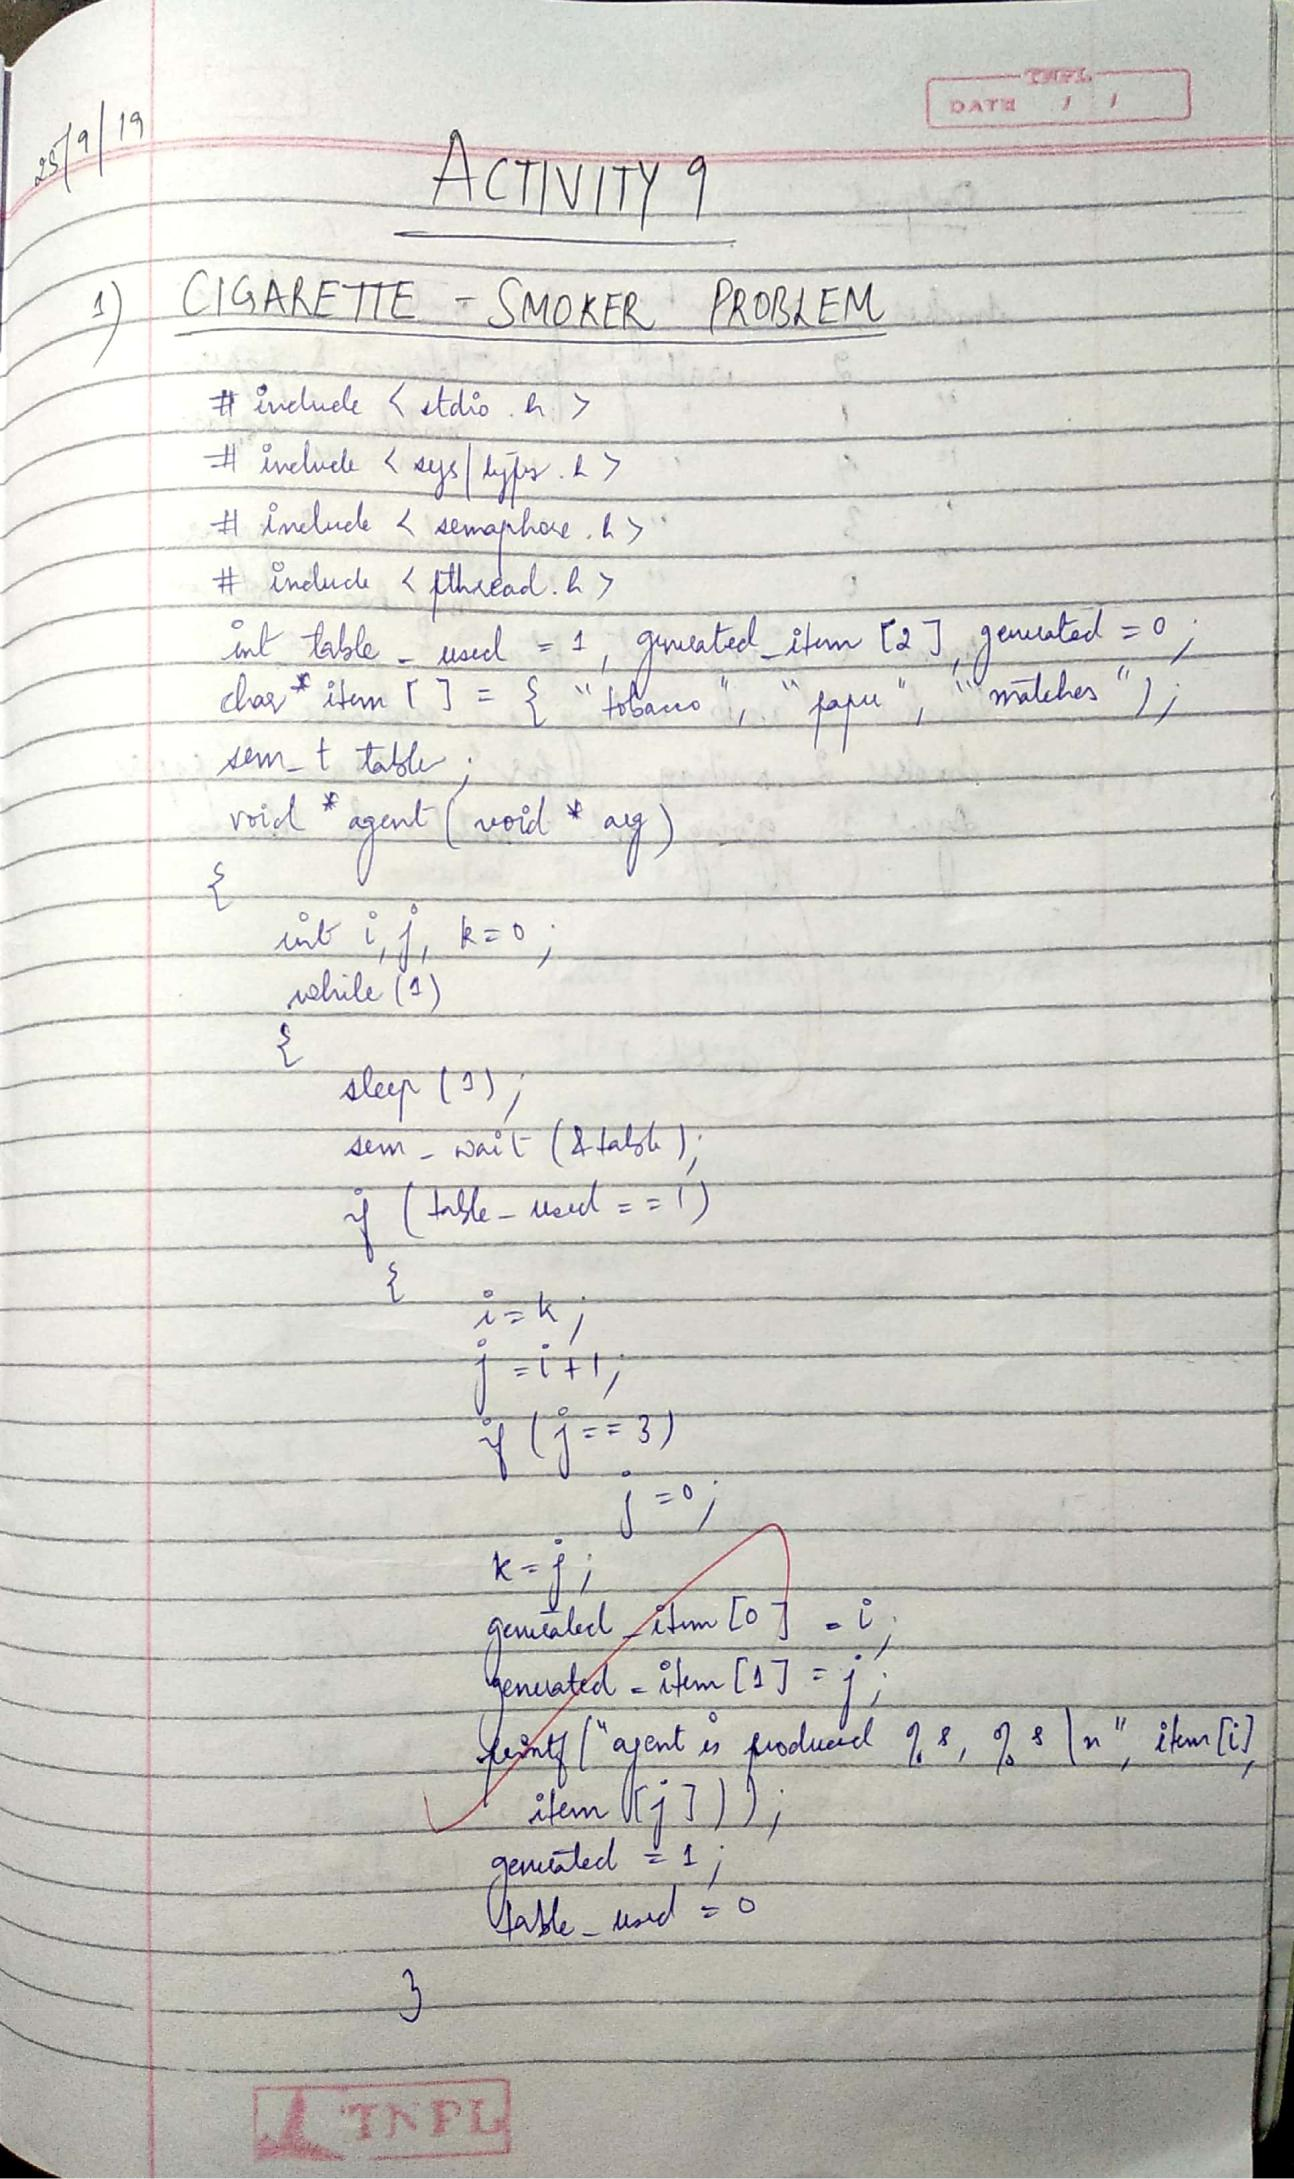 TNPL
DATE / /
25/9/19
ACTIVITY 9
1) CIGARETTE - SMOKER PROBLEM
# include < stdio . h >
# include < sys/types . h >
# include < semaphore . h >
# include < pthread . h >
int table _ used = 1 , generated _ item [2] , generated = 0 ;
char * item [ ] = { " tobacco " , " paper " , " matches " } ;
sem _ t table ;
void * agent ( void * arg )
{
int i, j, k = 0 ;
while (1)
{
sleep (1) ;
sem _ wait ( & table ) ;
if ( table _ used = = 1 )
{
i = k ;
j = i + 1 ;
if ( j = = 3 )
j = 0 ;
k = j ;
generated _ item [0] = i ;
generated _ item [1] = j ;
printf ( " agent is produced %s, %s \n " , item [i] ,
item [j] ) ) ;
generated = 1 ;
table _ used = 0
}
TNPL